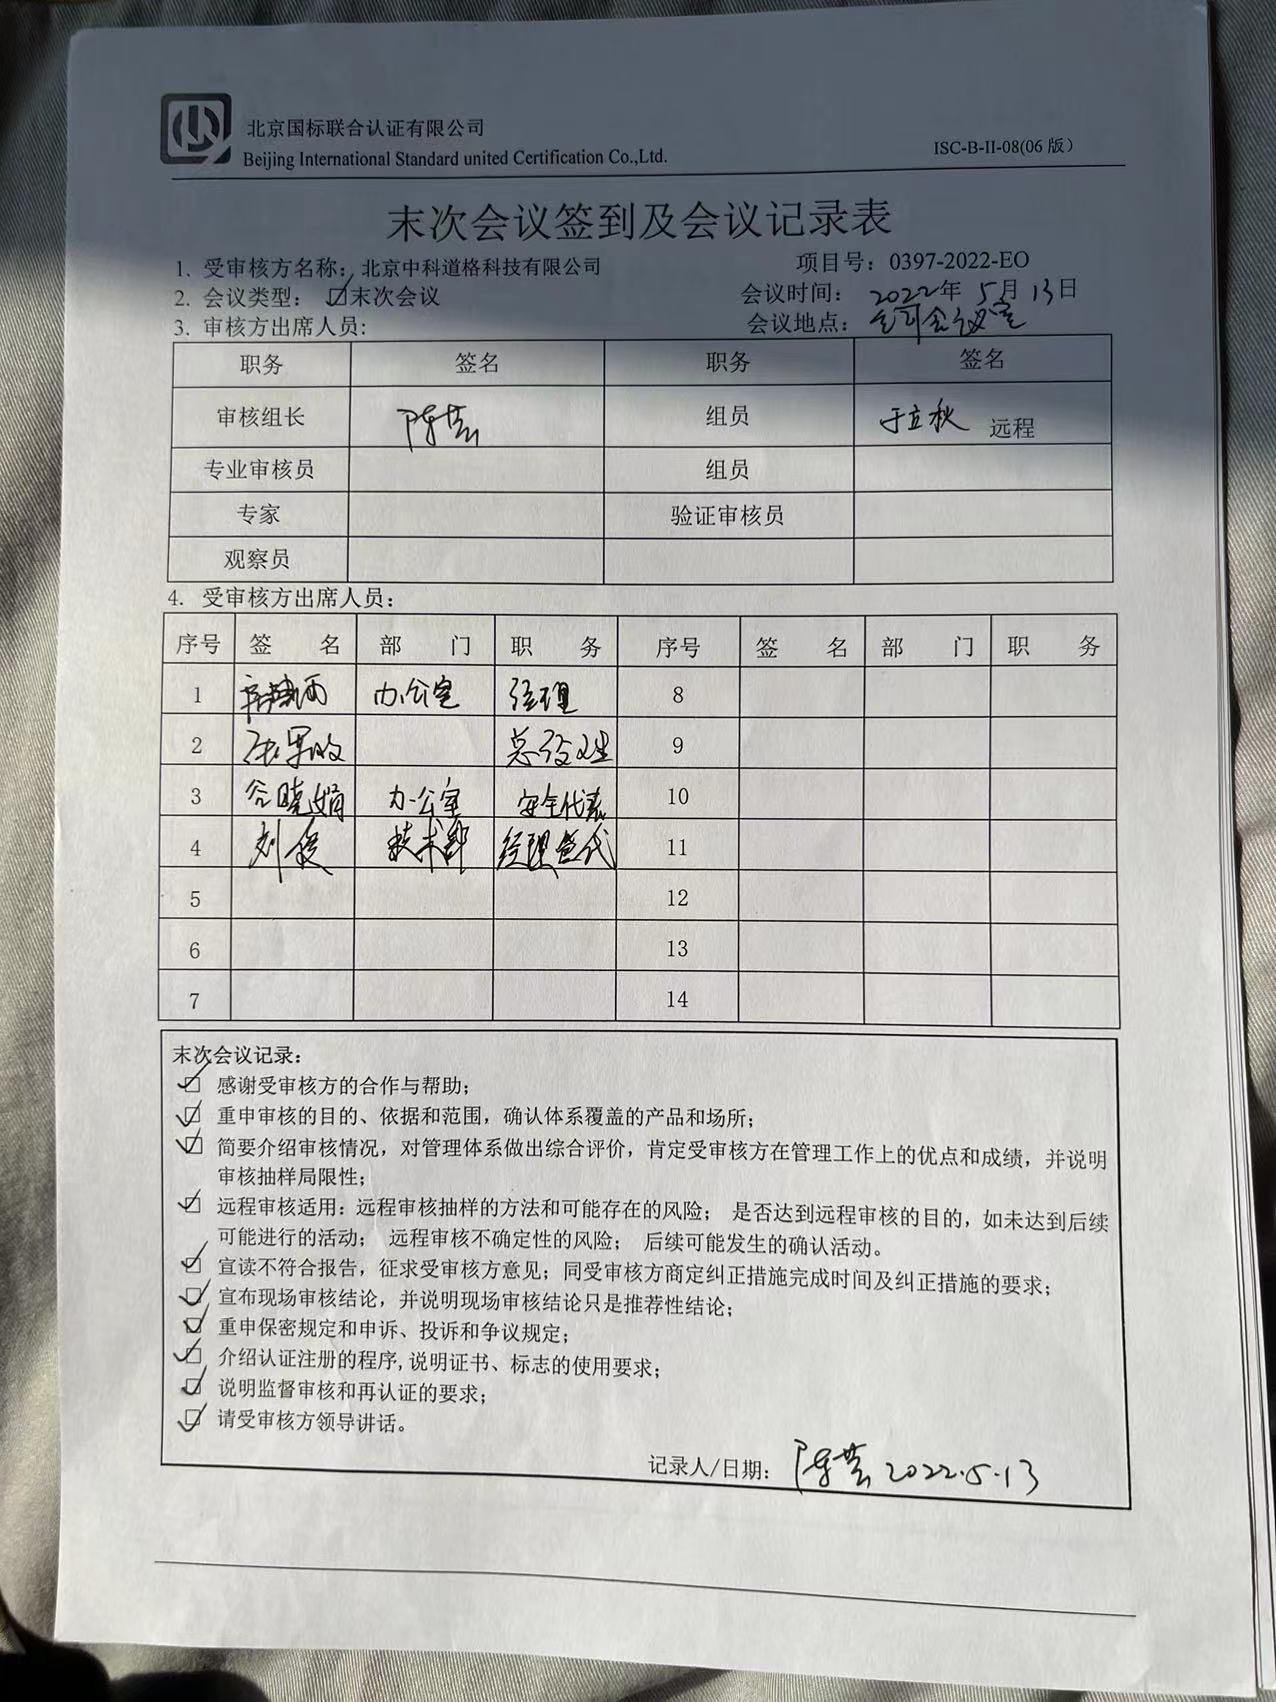 北京国标联合认证有限公司
Beijing International Standard united Certification Co.,Ltd.
ISC-B-II-08(06 版)
末次会议签到及会议记录表
1. 受审核方名称：北京中科道格科技有限公司 项目号：0397-2022-EO
2. 会议类型：☑末次会议 会议时间：2022年 5月 13日
3. 审核方出席人员： 会议地点：公司会议室
职务 签名 职务 签名
审核组长 陈芸 组员 于立秋 远程
专业审核员 组员
专家 验证审核员
观察员
4. 受审核方出席人员：
序号 签 名 部 门 职 务 序号 签 名 部 门 职 务
1 办公室 经理 8
2 总经理 9
3 谷晓娟 办公室 安全代表 10
4 刘俊 技术部 经理管代 11
5 12
6 13
7 14
末次会议记录：
☑ 感谢受审核方的合作与帮助；
☑ 重申审核的目的、依据和范围，确认体系覆盖的产品和场所；
☑ 简要介绍审核情况，对管理体系做出综合评价，肯定受审核方在管理工作上的优点和成绩，并说明
审核抽样局限性；
☑ 远程审核适用：远程审核抽样的方法和可能存在的风险； 是否达到远程审核的目的，如未达到后续
可能进行的活动； 远程审核不确定性的风险； 后续可能发生的确认活动。
☑ 宣读不符合报告，征求受审核方意见；同受审核方商定纠正措施完成时间及纠正措施的要求；
☑ 宣布现场审核结论，并说明现场审核结论只是推荐性结论；
☑ 重申保密规定和申诉、投诉和争议规定；
☑ 介绍认证注册的程序,说明证书、标志的使用要求；
☑ 说明监督审核和再认证的要求；
☑ 请受审核方领导讲话。
记录人/日期：陈芸 2022.5.13